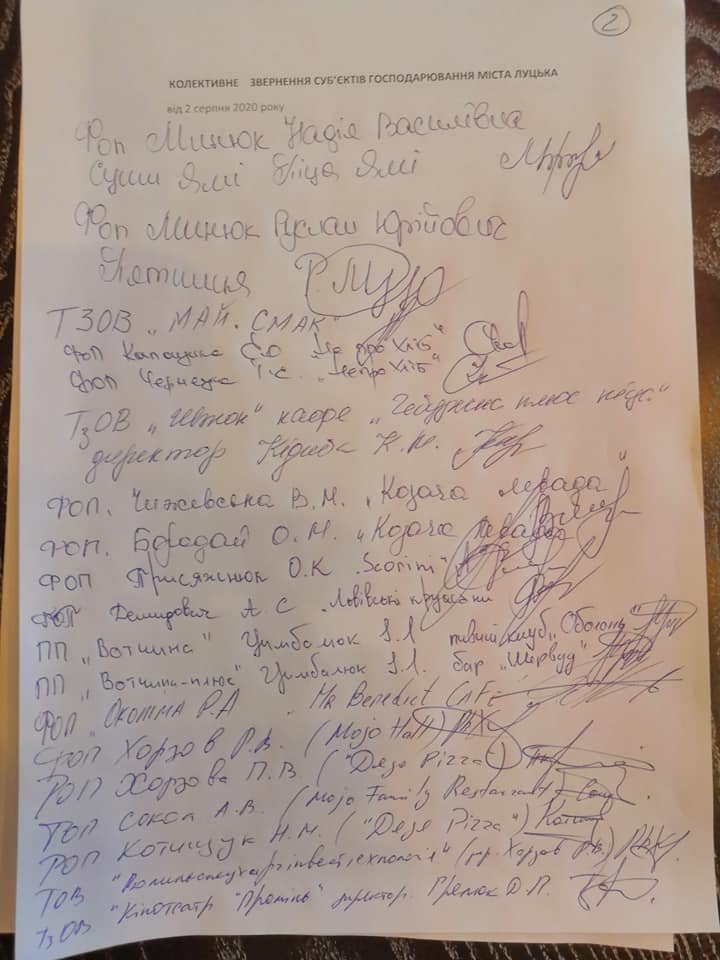 2
КОЛЕКТИВНЕ ЗВЕРНЕННЯ СУБ'ЄКТІВ ГОСПОДАРЮВАННЯ МІСТА ЛУЦЬКА
від 2 серпня 2020 року
Фоп Минюк Надія Василівна
Суши Ямі Піца Ямі
Фоп Минюк Руслан Юрійович
Пятниця
ТЗОВ "МАЙ. СМАК"
ФОП Капащика Є.О "Не про Хліб"
ФОП Чернежа Т.Є. "Не про Хліб"
ТзОВ "Чевжок" кафе плюс піца"
директор К.М.
ФОП. Чижевська В.М. "Козача левада"
ФОП. Бородай О.М. "Козача левада"
ФОП Присяжнюк О.К. Scorini
ФОП Демидович А С Львівські круасани
ПП "Вотчина" Цимбалюк І.І. пивний клуб "Оболонь"
ПП "Вотчина-плюс" Цимбалюк І.І. бар "Шервуд"
ФОП Окопна Р.А Mr Benedict CAFE
ФОП Хорзов Р.В. (Mojo Hall)
ФОП Хорзова П.В. ("Deje Pizza")
ФОП Сокол А.В. (Mojo Family Restaurant)
ФОП Котищук Н.М. ("Deje Pizza")
ТОВ (пр. Хорзов Р.В.)
ТзОВ. "Кінотеатр "Промінь" директор. Гремюк Д.П.